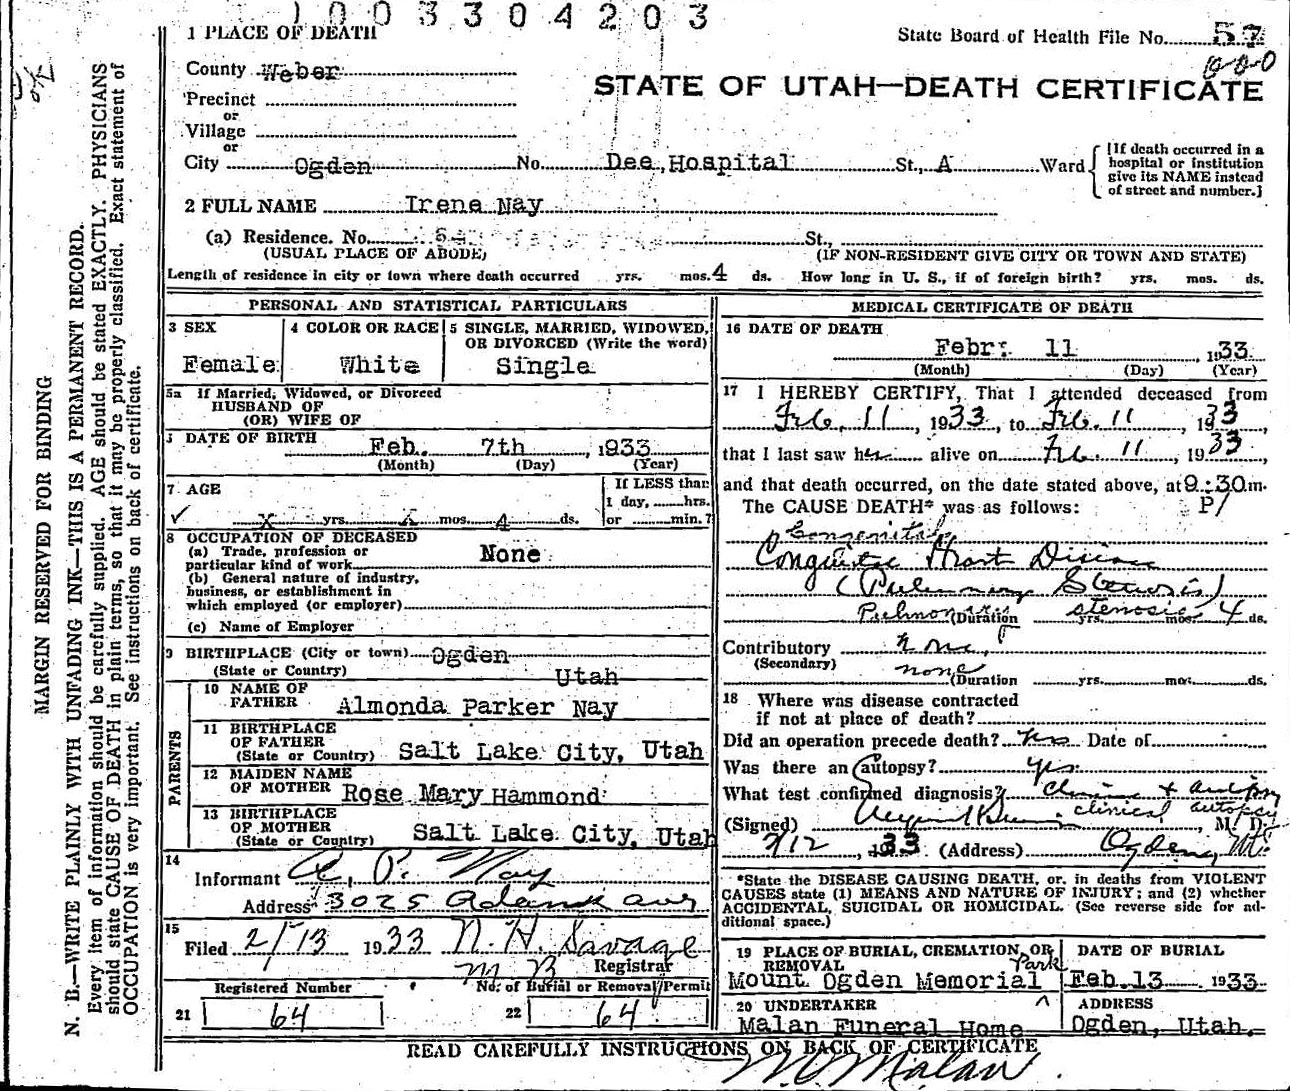 1003304203
1 PLACE OF DEATH
State Board of Health File No. 57
County Weber
STATE OF UTAH—DEATH CERTIFICATE
Precinct
or
Village
or
City Ogden No. Dee Hospital St., A Ward
[If death occurred in a hospital or institution give its NAME instead of street and number.]
2 FULL NAME Irene Nay
(a) Residence. No. St.,
(USUAL PLACE OF ABODE) (IF NON-RESIDENT GIVE CITY OR TOWN AND STATE)
Length of residence in city or town where death occurred yrs. mos. 4 ds. How long in U. S., if of foreign birth? yrs. mos. ds.
PERSONAL AND STATISTICAL PARTICULARS
3 SEX
Female
4 COLOR OR RACE
White
5 SINGLE, MARRIED, WIDOWED,
OR DIVORCED (Write the word)
Single
5a If Married, Widowed, or Divorced
HUSBAND OF
(OR) WIFE OF
DATE OF BIRTH Feb. 7th, 1933
(Month) (Day) (Year)
7 AGE
X yrs. X mos. 4 ds.
If LESS than
1 day, hrs.
or min.?
8 OCCUPATION OF DECEASED
(a) Trade, profession or
particular kind of work None
(b) General nature of industry,
business, or establishment in
which employed (or employer)
(c) Name of Employer
9 BIRTHPLACE (City or town) Ogden
(State or Country) Utah
PARENTS
10 NAME OF
FATHER Almonda Parker Nay
11 BIRTHPLACE
OF FATHER
(State or Country) Salt Lake City, Utah
12 MAIDEN NAME
OF MOTHER Rose Mary Hammond
13 BIRTHPLACE
OF MOTHER
(State or Country) Salt Lake City, Utah
14
Informant A. P. Nay
Address 3025 Adams ave
15
Filed 2/13 1933 N. H. Savage
M D Registrar
Registered Number No. of Burial or Removal Permit
21 64 22 64
MEDICAL CERTIFICATE OF DEATH
16 DATE OF DEATH
Febr. 11, 1933
(Month) (Day) (Year)
17 I HEREBY CERTIFY, That I attended deceased from
Feb. 11, 1933, to Feb. 11, 1933,
that I last saw her alive on Feb. 11, 1933,
and that death occurred, on the date stated above, at 9:30 m.
The CAUSE DEATH* was as follows: P/
Congenital
Congenital Heart Disease
(Pulmonary Stenosis)
Pulmonary stenosis
(Duration yrs. mos. 4 ds.
Contributory none
(Secondary) none
(Duration yrs. mos. ds.
18 Where was disease contracted
if not at place of death?
Did an operation precede death? Date of
Was there an autopsy? yes
What test confirmed diagnosis? Clinical + autopsy
clinical autopsy
(Signed) , M. D.
2/12, 1933 (Address) Ogden, Ut.
*State the DISEASE CAUSING DEATH, or. in deaths from VIOLENT
CAUSES state (1) MEANS AND NATURE OF INJURY; and (2) whether
ACCIDENTAL, SUICIDAL OR HOMICIDAL. (See reverse side for ad-
ditional space.)
19 PLACE OF BURIAL, CREMATION, OR
REMOVAL Park
Mount Ogden Memorial
DATE OF BURIAL
Feb. 13 1933
20 UNDERTAKER
Malan Funeral Home
ADDRESS
Ogden, Utah.
READ CAREFULLY INSTRUCTIONS ON BACK OF CERTIFICATE
Malan
MARGIN RESERVED FOR BINDING
N. B.—WRITE PLAINLY WITH UNFADING INK—THIS IS A PERMANENT RECORD.
Every item of information should be carefully supplied. AGE should be stated EXACTLY. PHYSICIANS
should state CAUSE OF DEATH in plain terms, so that it may be properly classified. Exact statement of
OCCUPATION is very important. See instructions on back of certificate.